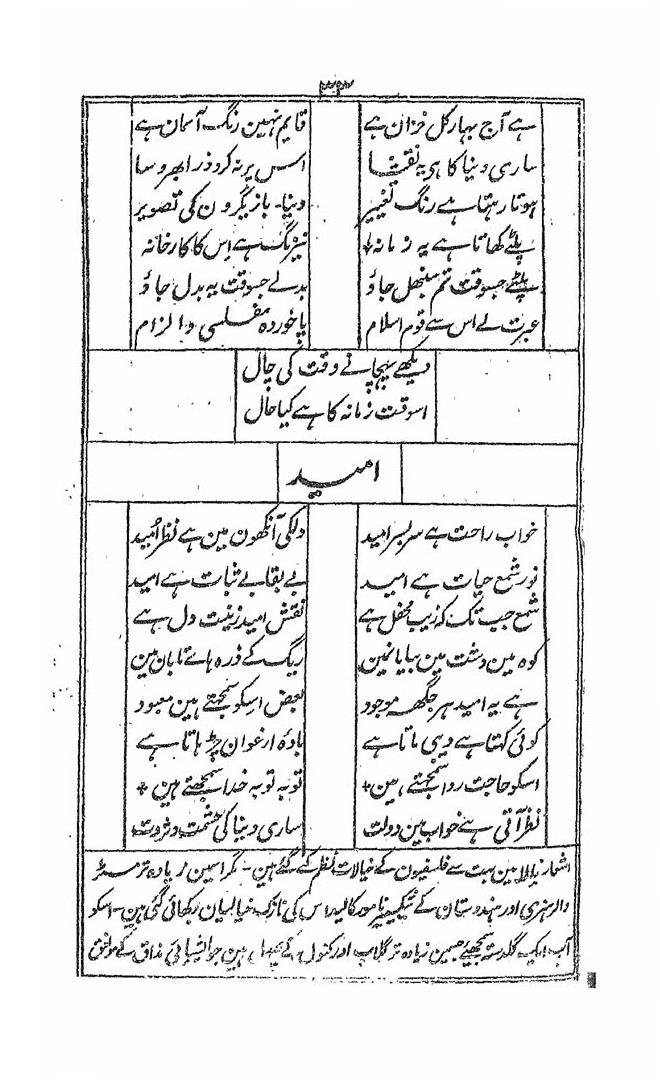 ۳۳
ہے آج بہار کل خزان ہے قایم نہین رنگ آسمان ہے
ساری دنیا کا ہی یہ نقشا اسس پر نہ کرو ذرا بھروسا
ہوتا رہتا ہے رنگ تغییر دنیا۔ بازیگرون کی تصویر
پلٹے کھاتا ہے یہ زمانہ نیرنگ ہے اس کا کارخانہ
پلٹے جسوقت تم سنبھل جاؤ بدلے جسوقت یہ بدل جاؤ
عبرت لے اس سے قوم اسلام پا خوردہ مفلسی و الزام
دیکھے پہچانے وقت کی چال
اسوقت زمانہ کا ہے کیا حال
امید
خواب راحت ہے سربسر امید دلکی آنکھون مین ہے نظر امید
نور شمع حیات ہے امید بے بقا بے ثبات ہے امید
شمع جب تک کہ زیب محفل ہے نقش امید زینت دل ہے
کوہ مین دشت مین بیابانمین ریگ کے ذرہ ہاے تابان مین
ہے یہ امید ہر جگھہ موجود بعض اسکو سمجھتے ہین معبود
کوئی کہتا ہے دیی ماتا ہے بادہ ارغوان چڑہاتا ہے
اسکو حاجت روا سمجتے ہین توبہ توبہ خدا سمجھتے ہین
نظر آتی ہے خواب مین دولت ساری دنیا کی حشمت و ثروت
اشعار بالا مین بہت سے فلسفیون کے خیالات نظم کئے گئے ہین۔ مگر اسمین زیادہ تر مسٹر
والر ہنری اور ہندوستان کے شیکسپیر نامور کالیداس کی نازک خیالیان دکھائی گئی ہین۔ اسکو
آپ ایک گلدستہ سمجھیے جسمین زیادہ تر گلاب اور کنول کے پھول ہین جو ایشیائی مذاق کے موافق